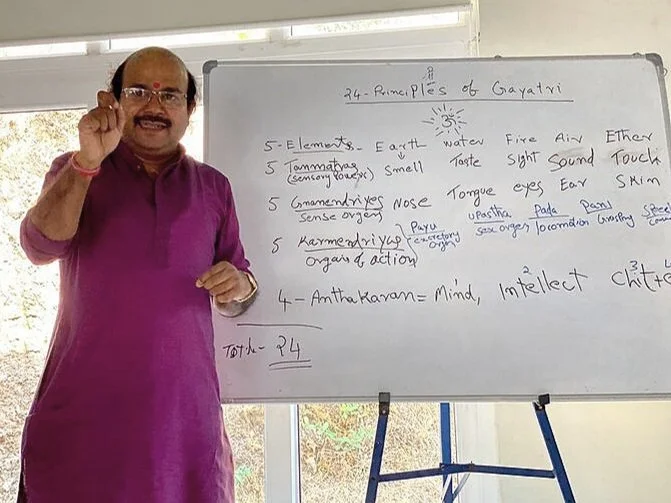 24-Principles of Gayatri
ॐ
5-Elements- Earth water Fire Air Ether
5 Tanmatras Smell Taste Sight Sound Touch
(sensory powers)
5 Gnanendriyes Nose Tongue eyes Ear Skin
sense organs
5 Karmendriyas Payu upastha Pada Pani
organs of action excretory organ sex organ locomotion Grasping
4-Anthakaran= Mind, Intellect Chit+
1 2 3
Total- 24